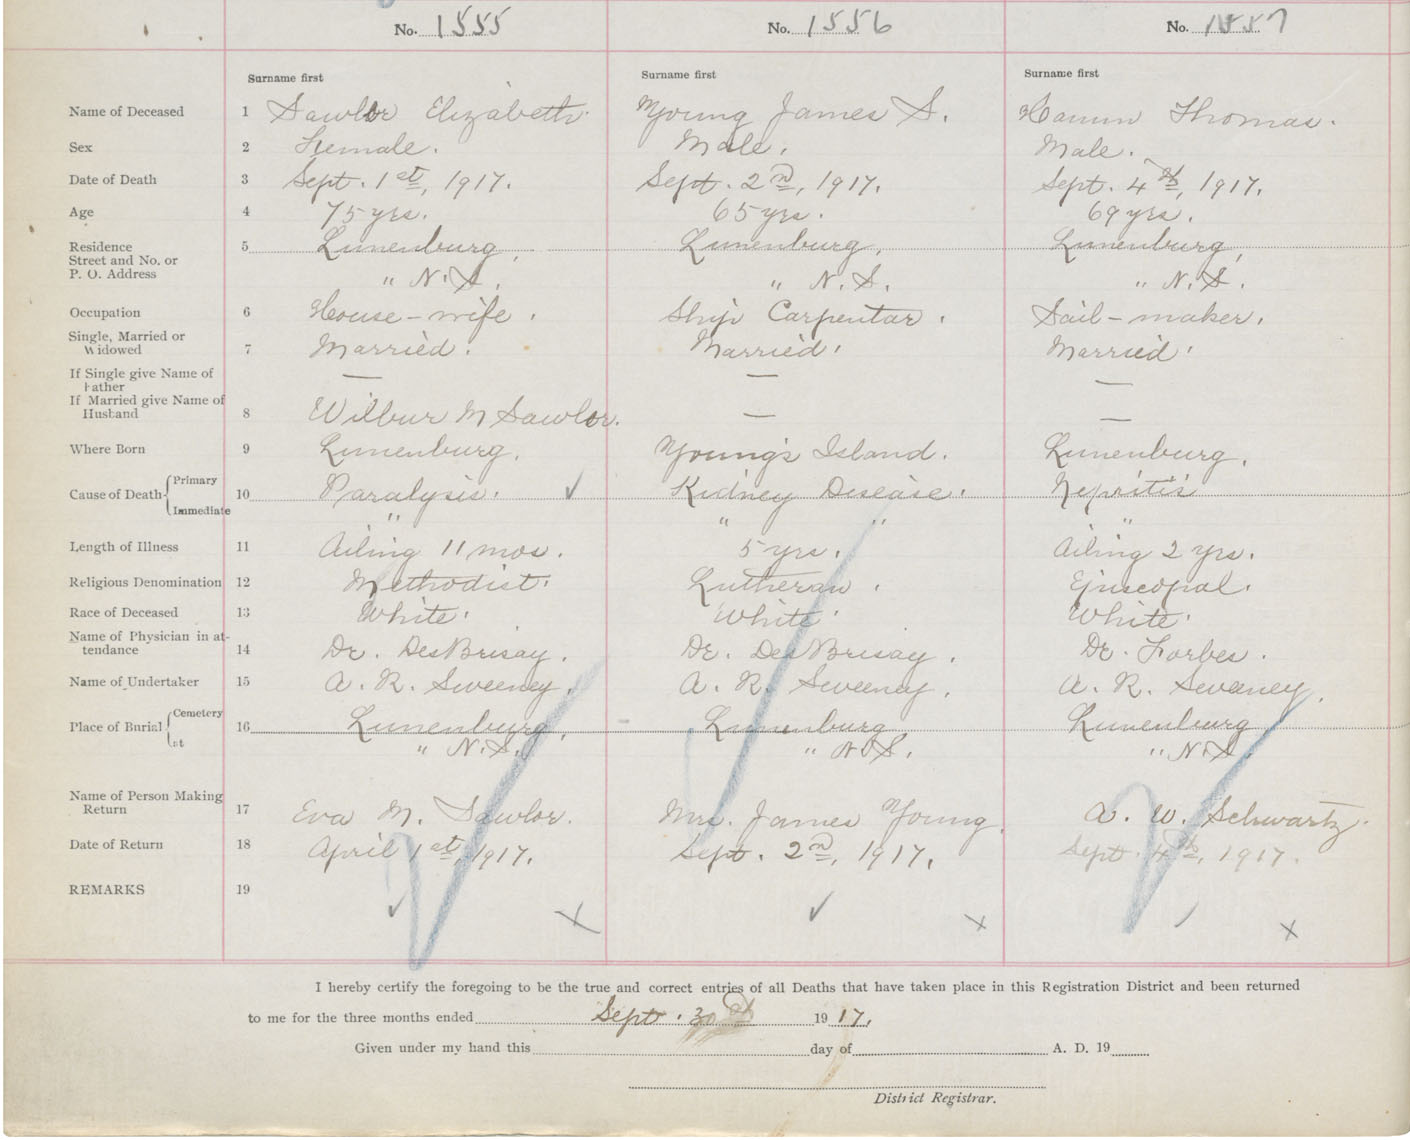 No. 1555 No. 1556 No. 1557
Surname first Surname first Surname first
Name of Deceased 1 Sawlor Elizabeth. Young James S. Hamm Thomas.
Sex 2 Female. Male. Male.
Date of Death 3 Sept. 1st, 1917. Sept. 2nd, 1917. Sept. 4th, 1917.
Age 4 75 yrs. 65 yrs. 69 yrs.
Residence 5 Lunenburg, Lunenburg, Lunenburg,
Street and No. or
P. O. Address " N.S. " N.S. " N.S.
Occupation 6 House-wife. Ship Carpentar. Sail-maker.
Single, Married or
Widowed 7 Married. Married. Married.
If Single give Name of — — —
Father
If Married give Name of
Husband 8 Wilbur M Sawlor. — —
Where Born 9 Lunenburg. Young's Island. Lunenburg.
Cause of Death { Primary
10 Paralysis. ✓ Kidney Disease. Nepritis
Immediate " " " "
Length of Illness 11 Ailing 11 mos. 5 yrs. Ailing 2 yrs.
Religious Denomination 12 Methodist. Lutheran. Episcopal.
Race of Deceased 13 White. White. White.
Name of Physician in at-
tendance 14 Dr. DesBrisay. Dr. DesBrisay. Dr. Forbes.
Name of Undertaker 15 A. R. Sweeney. A. R. Sweeney. A. R. Sweeney.
Place of Burial { Cemetery
16 Lunenburg, Lunenburg Lunenburg
Lot " N.S. " N.S. " N.S.
Name of Person Making
Return 17 Eva M. Sawlor. Mrs. James Young. A. W. Schwartz.
Date of Return 18 April 1st, 1917. Sept. 2nd, 1917. Sept. 4th, 1917.
REMARKS 19
✓ x ✓ x / x
I hereby certify the foregoing to be the true and correct entries of all Deaths that have taken place in this Registration District and been returned
to me for the three months ended Sept. 30th 1917.
Given under my hand this day of A. D. 19
District Registrar.